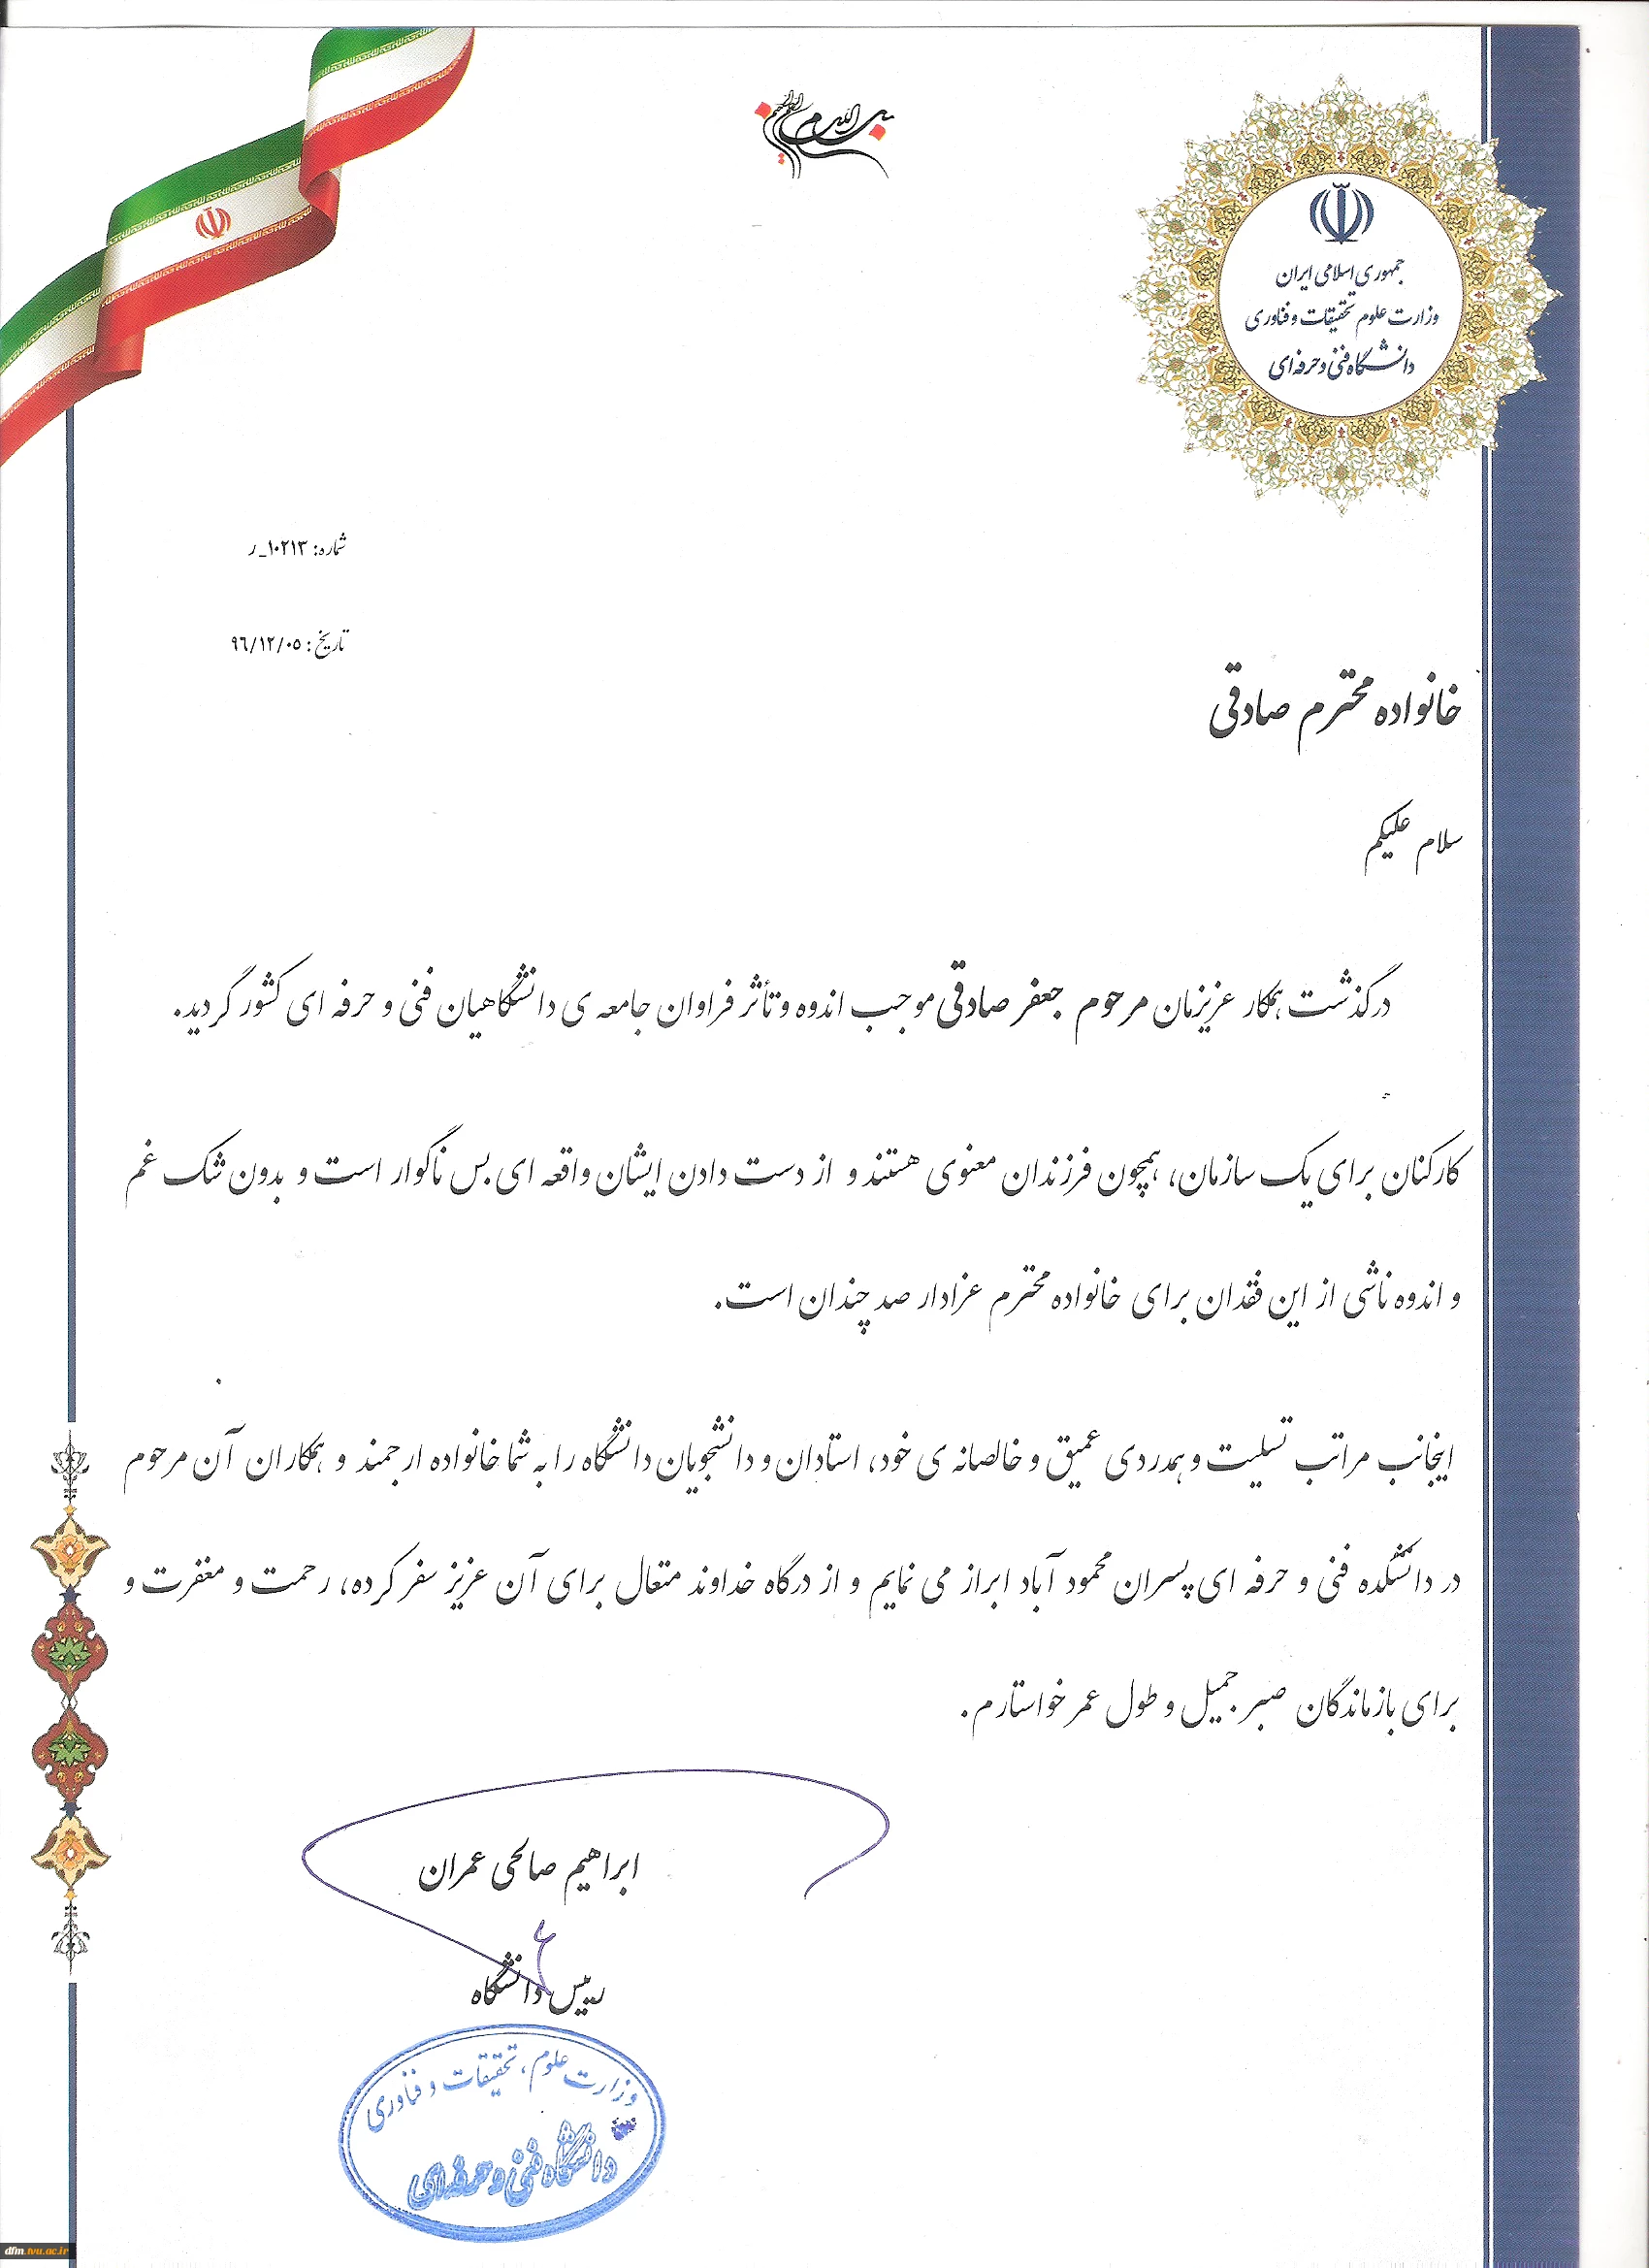 بسم الله الرحمن الرحیم
جمهوری اسلامی ایران
وزارت علوم تحقیقات و فناوری
دانشگاه فنی و حرفه ای
شماره: ۱۰۲۱۳_ر
تاریخ: ۹۶/۱۲/۰۵
خانواده محترم صادقی
سلام علیکم
درگذشت همکار عزیزمان مرحوم جعفر صادقی موجب اندوه و تأثر فراوان جامعه ی دانشگاهیان فنی و حرفه ای کشور گردید.
کارکنان برای یک سازمان، همچون فرزندان معنوی هستند و از دست دادن ایشان واقعه ای بس ناگوار است و بدون شک غم
و اندوه ناشی از این فقدان برای خانواده محترم عزادار صد چندان است.
اینجانب مراتب تسلیت و همدردی عمیق و خالصانه ی خود، استادان و دانشجویان دانشگاه را به شما خانواده ارجمند و همکاران آن مرحوم
در دانشکده فنی و حرفه ای پسران محمود آباد ابراز می نمایم و از درگاه خداوند متعال برای آن عزیز سفر کرده، رحمت و مغفرت و
برای بازماندگان صبر جمیل و طول عمر خواستارم.
ابراهیم صالحی عمران
رییس دانشگاه
وزارت علوم، تحقیقات و فناوری
دانشگاه فنی و حرفه ای
dfm.tvu.ac.ir